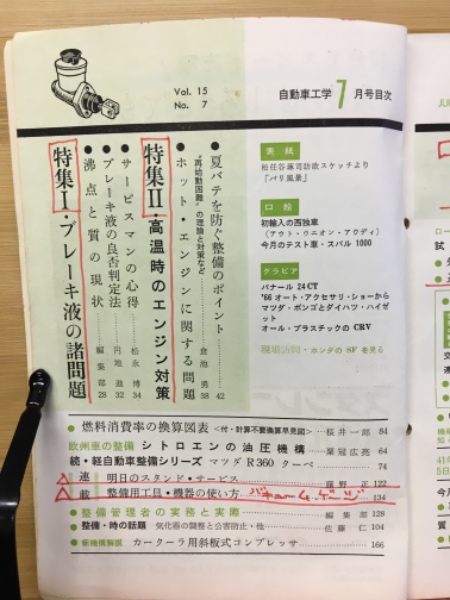 Vol. 15
No. 7
自動車工学 7 月号目次
特集Ⅰ・ブレーキ液の諸問題
●沸点と質の現状 編集部 28
●ブレーキ液の良否判定法 32
●サービスマンの心得 松永博 34
特集Ⅱ・高温時のエンジン対策
●ホット・エンジンに関する問題 38
“再始動困難”の理論と対策など
●夏バテを防ぐ整備のポイント 42
表紙
「パリ風景」
口絵
初輸入の西独車
(アウト・ウニオン・アウディ)
今月のテスト車・スバル 1000
グラビア
パナール 24 CT
'66 オート・アクセサリ・ショーから
マツダ・ボンゴとダイハツ・ハイゼット
オール・プラスチックの CRV
現場訪問・ホンダの SF を見る
●燃料消費率の換算図表〈付・計算不要換算早見図〉…桜井一郎 84
欧州車の整備 シトロエンの油圧機構 葉冠広亮 64
続・軽自動車整備シリーズ マツダ R360 クーペ 74
連載 明日のスタンド・サービス 藤野正 122
整備用工具・機器の使い方 バキューム・ゲージ 134
●整備管理者の実務と実際 編集部 128
●整備・時の話題 気化器の調整と公害防止・他 佐藤仁 104
●新機構解説 カークーラ用斜板式コンプレッサ 166